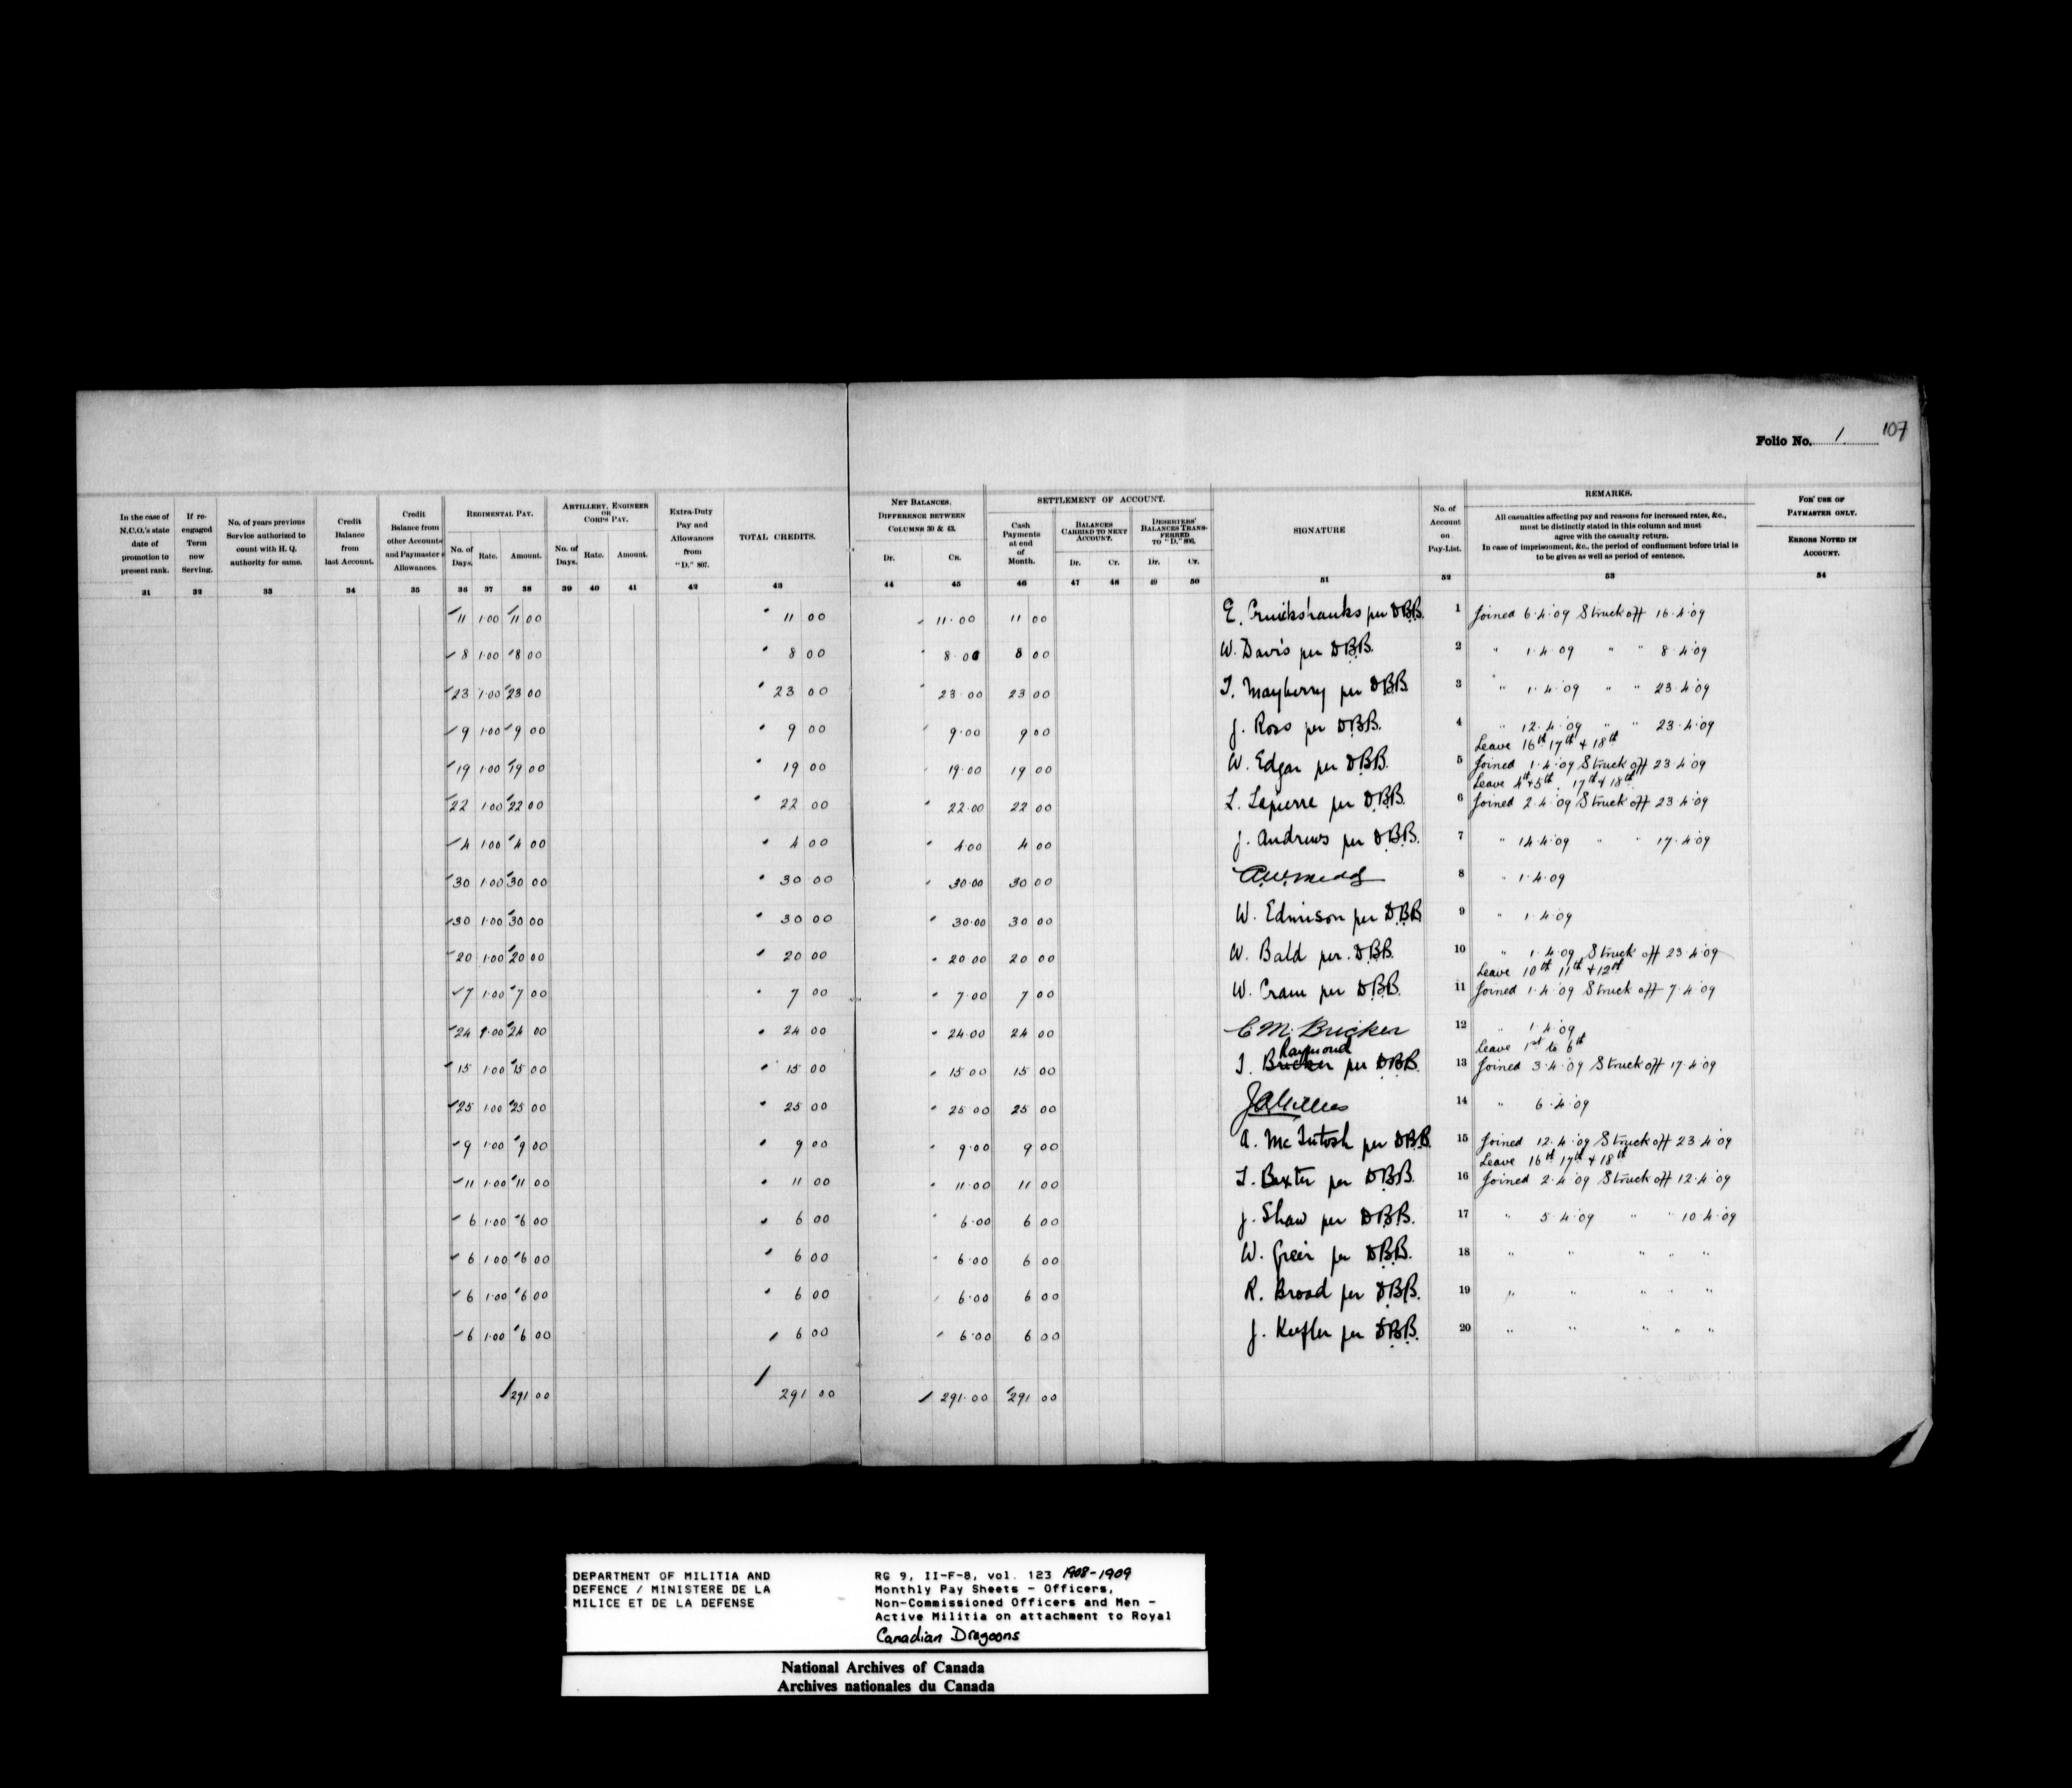 Folio No. 1 107
In the case of N.C.O.'s state date of promotion to present rank.
If re-engaged Term now Serving.
No. of years previous Service authorized to count with H. Q. authority for same.
Credit Balance from last Account.
Credit Balance from other Accounts and Paymaster's Allowances.
REGIMENTAL PAY.
No. of Days. Rate. Amount.
ARTILLERY, ENGINEER OR CORPS PAY.
No. of Days. Rate. Amount.
Extra-Duty Pay and Allowances from "D." 807.
TOTAL CREDITS.
NET BALANCES.
DIFFERENCE BETWEEN COLUMNS 30 & 43.
Dr. Cr.
SETTLEMENT OF ACCOUNT.
Cash Payments at end of Month.
BALANCES CARRIED TO NEXT ACCOUNT.
Dr. Cr.
DESERTERS' BALANCES TRANSFERRED TO "D." 806.
Dr. Cr.
SIGNATURE
No. of Account on Pay-List.
REMARKS.
All casualties affecting pay and reasons for increased rates, &c.,
must be distinctly stated in this column and must
agree with the casualty return.
In case of imprisonment, &c., the period of confinement before trial is
to be given as well as period of sentence.
FOR USE OF PAYMASTER ONLY.
ERRORS NOTED IN ACCOUNT.
31 32 33 34 35 36 37 38 39 40 41 42 43 44 45 46 47 48 49 50 51 52 53 54
11 1.00 11 00 11 00 11.00 11 00 E. Cruickshanks per D.B.B. 1 Joined 6.4.09 Struck off 16.4.09
8 1.00 8 00 8 00 8.00 8 00 W. Davis per D.B.B. 2 " 1.4.09 " " 8.4.09
23 1.00 23 00 23 00 23.00 23 00 T. Mayberry per D.B.B. 3 " 1.4.09 " " 23.4.09
9 1.00 9 00 9 00 9.00 9 00 J. Ross per D.B.B. 4 " 12.4.09 " " 23.4.09
Leave 16th 17th & 18th
19 1.00 19 00 19 00 19.00 19 00 W. Edgar per D.B.B. 5 Joined 1.4.09 Struck off 23.4.09
Leave 4th & 5th. 17th & 18th
22 1.00 22 00 22 00 22.00 22 00 L. Lapierre per D.B.B. 6 Joined 2.4.09 Struck off 23.4.09
4 1.00 4 00 4 00 4.00 4 00 J. Andrews per D.B.B. 7 " 14.4.09 " " 17.4.09
30 1.00 30 00 30 00 30.00 30 00 8 " 1.4.09
30 1.00 30 00 30 00 30.00 30 00 W. Edmison per D.B.B. 9 " 1.4.09
20 1.00 20 00 20 00 20 00 20 00 W. Bald per. D.B.B. 10 " 1.4.09 Struck off 23.4.09
Leave 10th 11th & 12th
7 1.00 7 00 7 00 7.00 7 00 W. Cram per D.B.B. 11 Joined 1.4.09 Struck off 7.4.09
24 1.00 24 00 24 00 24.00 24 00 C M. Bricker 12 " 1.4.09
leave 1st to 6th
Raymond
15 1.00 15 00 15 00 15 00 15 00 T. Bricker per D.B.B. 13 Joined 3.4.09 Struck off 17.4.09
25 1.00 25 00 25 00 25 00 25 00 14 " 6.4.09
9 1.00 9 00 9 00 9.00 9 00 A. McIntosh per D.B.B. 15 Joined 12.4.09 Struck off 23.4.09
Leave 16th 17th & 18th
11 1.00 11 00 11 00 11.00 11 00 T. Baxter per D.B.B. 16 Joined 2.4.09 Struck off 12.4.09
6 1.00 6 00 6 00 6.00 6 00 J. Shaw per D.B.B. 17 " 5.4.09 " " 10.4.09
6 1.00 6 00 6 00 6.00 6 00 W. Greir per D.B.B. 18 " " " " "
6 1.00 6 00 6 00 6.00 6 00 R. Broad per D.B.B. 19 " " " " "
6 1.00 6 00 6 00 6.00 6 00 J. per D.B.B. 20 " " " " "
291 00 291 00 291.00 291 00
DEPARTMENT OF MILITIA AND
DEFENCE / MINISTERE DE LA
MILICE ET DE LA DEFENSE
RG 9, II-F-8, vol. 123 1908-1909
Monthly Pay Sheets - Officers,
Non-Commissioned Officers and Men -
Active Militia on attachment to Royal
Canadian Dragoons
National Archives of Canada
Archives nationales du Canada